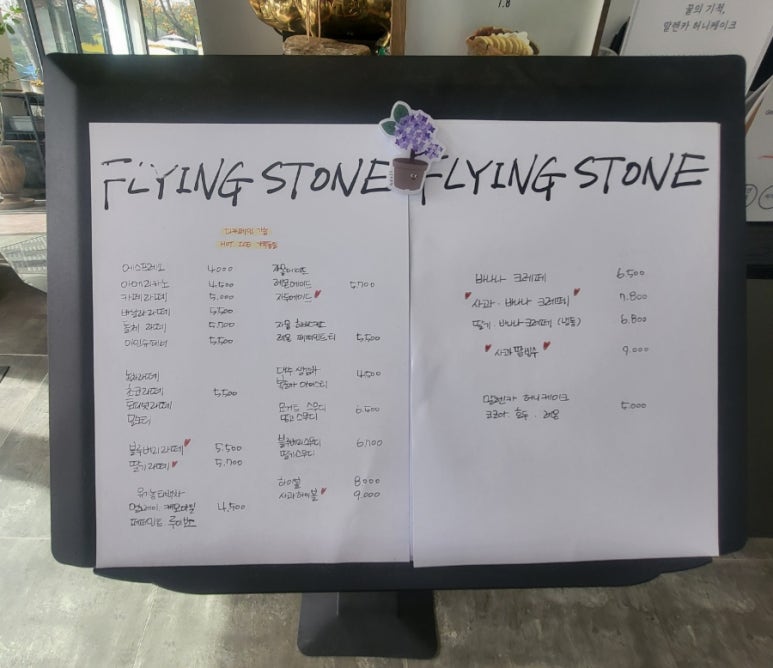 꿀의 기적,
말렌카 허니케이크
FLYING STONE
디카페인 가능
HOT ICE 가격동일
에스프레소 4.000
아메리카노 4.500
카페라떼 5.000
바닐라 라떼 5.500
5.500
아인슈페너 5.500
녹차라떼
초코라떼 5.500
밀크티
블루베리라떼 5.500
딸기라떼 5.700
유기농티백차
얼그레이. 캐모마일 4.500
페퍼민트. 루이보스
자몽에이드
레몬에이드 5.700
자두에이드
자몽
레몬 페퍼민트티 5.500
대추 쌍화차
복숭아 아이스티 4.500
요거트 스무디
망고스무디 6.500
블루베리스무디
딸기스무디 6.700
하이볼 8000
사과하이볼 9.000
FLYING STONE
바나나 크레페 6.500
사과. 바나나 크레페 7.800
딸기. 바나나 크레페 (냉동) 6.800
사과팥빙수 9.000
말렌카 허니케이크
코코아. 호두. 레몬 5.000